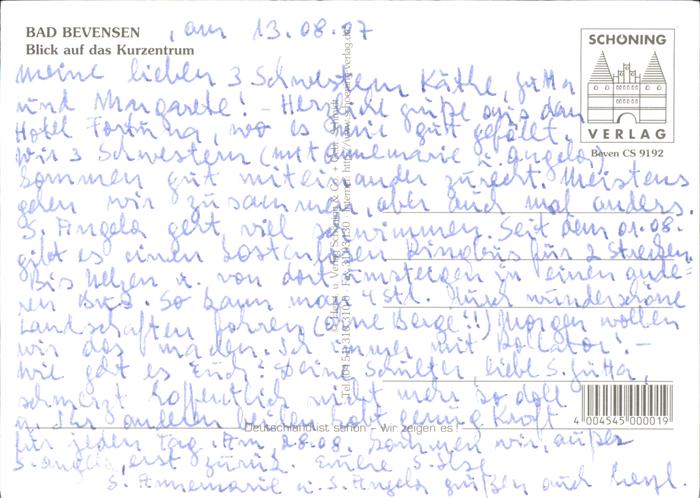 BAD BEVENSEN , am 13.08.07
Blick auf das Kurzentrum
SCHÖNING
VERLAG
Beven CS 9192
Meine lieben 3 Schwestern Käthe, Jutta
und Margarete! - Herzliche Grüße aus dem
Hotel Fortuna, wo es mir gut gefällt.
Wir 3 Schwestern (mit Annemarie u. Angela)
kommen gut miteinander zurecht. Meistens
gehen wir zusammen, aber auch mal anders.
S. Angela geht viel schwimmen. Seit dem 01.08.
gibt es einen kostenlosen Ringbus für 2 Strecken.
Bis Uelzen u. von dort umsteigen in einen ande-
ren Bus. So kann man 4 Std. durch wunderschöne
Landschaften fahren (ohne Berge!!) Morgen wollen
wir das machen. Ich immer mit Rollator! -
Wie geht es Euch? Deine Schulter, liebe S. Jutta,
schmerzt hoffentlich nicht mehr so doll
u. Ihr anderen beiden habt genug Kraft
für jeden Tag. Am 28.08. kommen wir, außer
S. Angela, erst zurück. Eure S. Ilse
S. Annemarie u. S. Angela grüßen auch herzl.
Deutschland ist schön - wir zeigen es!
4 004545 000019